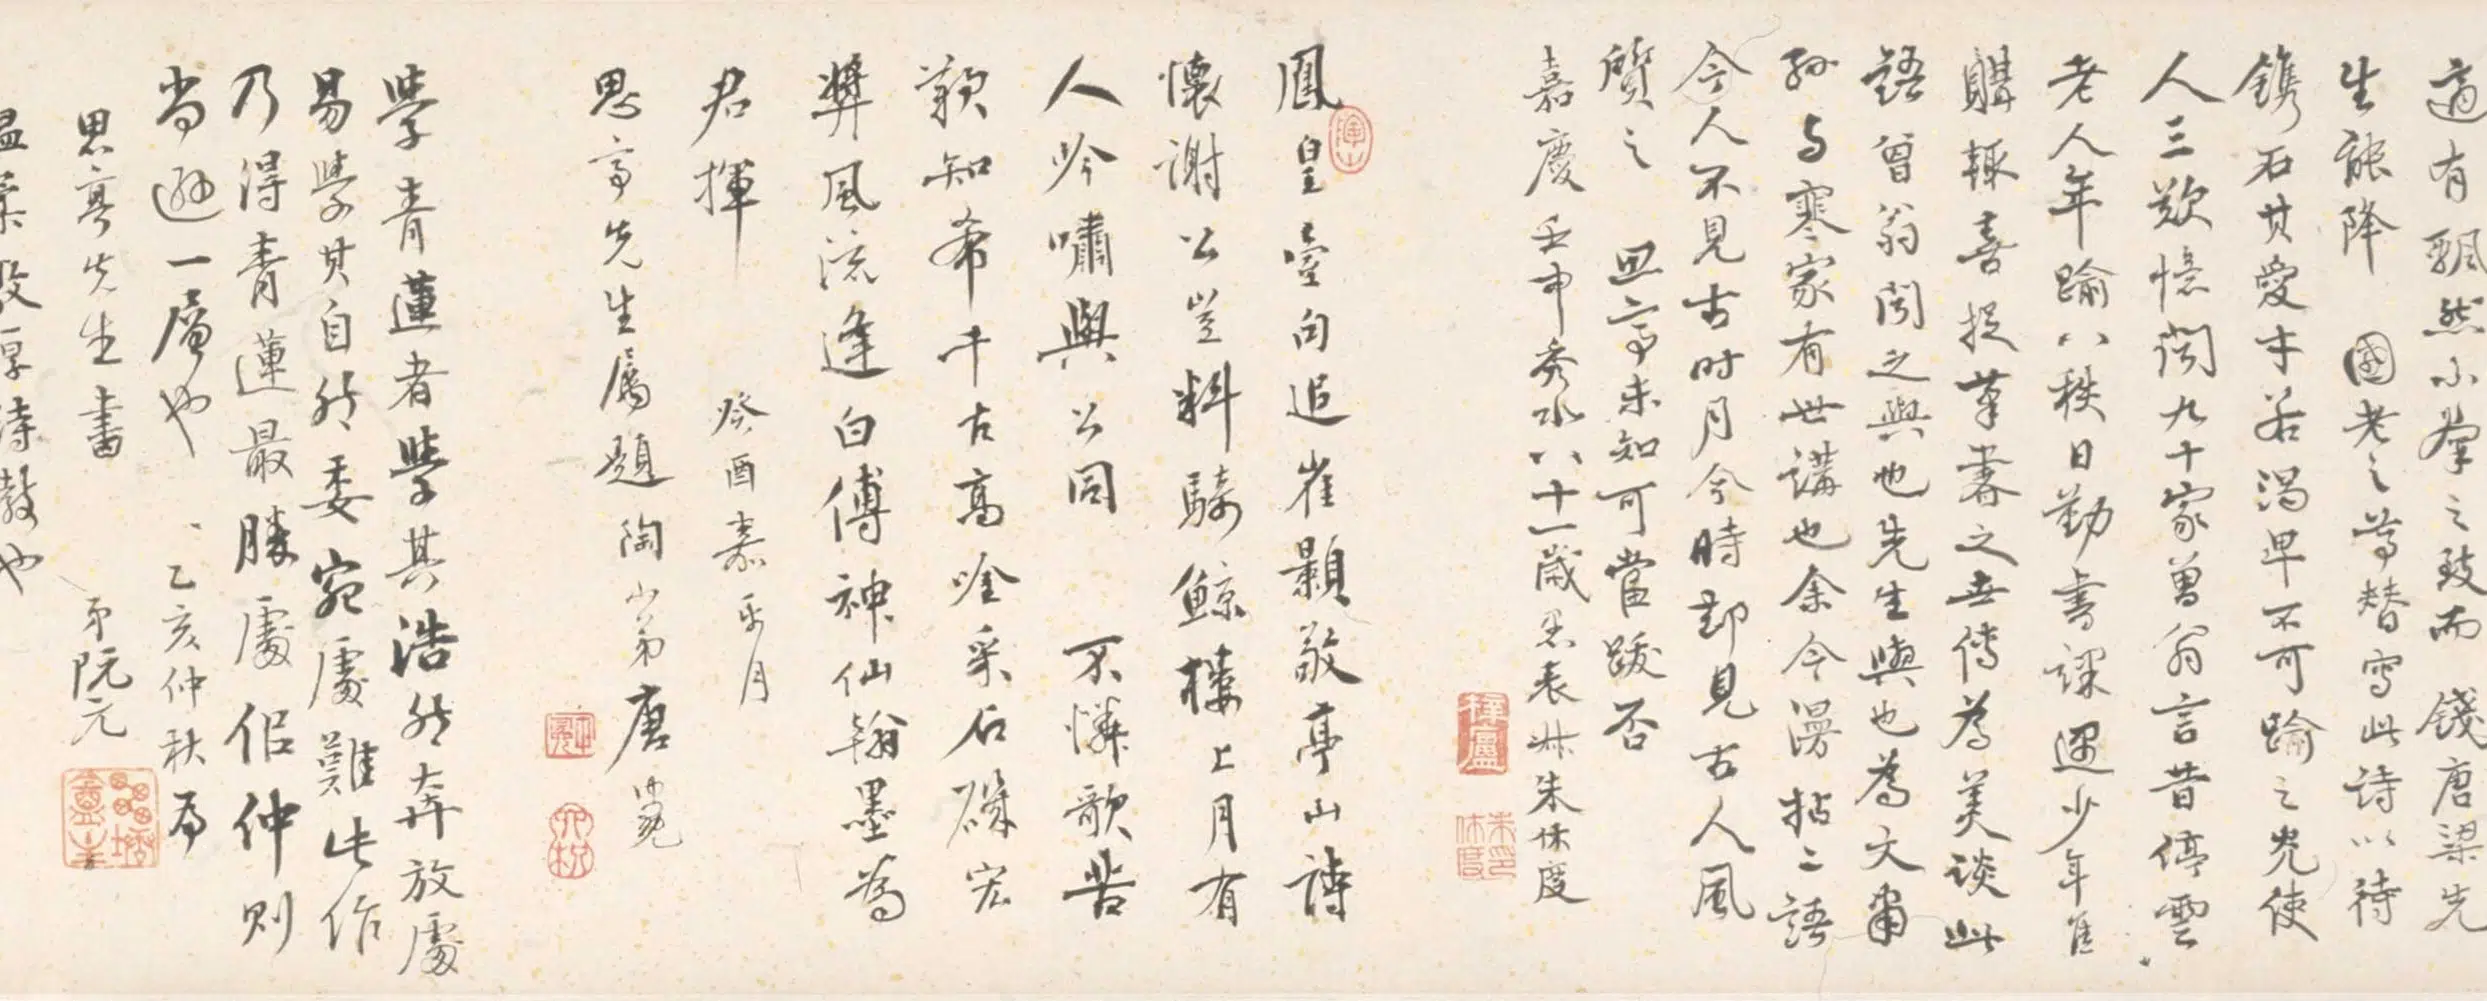 適有飄然不羣之致而錢唐梁先
生能降國老之尊替寫此詩以待
鐫石其愛才若渴早不可踰之光使
人三歎憶閱九十家曾翁言昔停雲
老人年踰八秩日勤書課遇少年
購輒喜捉筆書之世傳為美談此
語曾翁聞之與也先生與也為文肅
孫与寒家有世講也余今漫拈二語
今人不見古时月今時却見古人風
質之思亭未知可當跋否
嘉慶壬申秀水八十一歲愚表叔朱休度
鳳皇臺句追崔顥敬亭山詩
懷謝公豈料騎鯨樓上月有
人吟嘯與公同不憐歌苦
歎知希千古高唫采石磯宏
獎風流逢白傅神仙翰墨為
君揮癸酉嘉平月
思亭先生屬題陶山弟唐仲冕
學青蓮者學其浩然奔放處
易學其自然委宛處難此作
乃得青蓮最勝處但仲則
尚遜一廛也乙亥仲秋為
思亭先生書弟阮元
溫柔敦厚詩教也